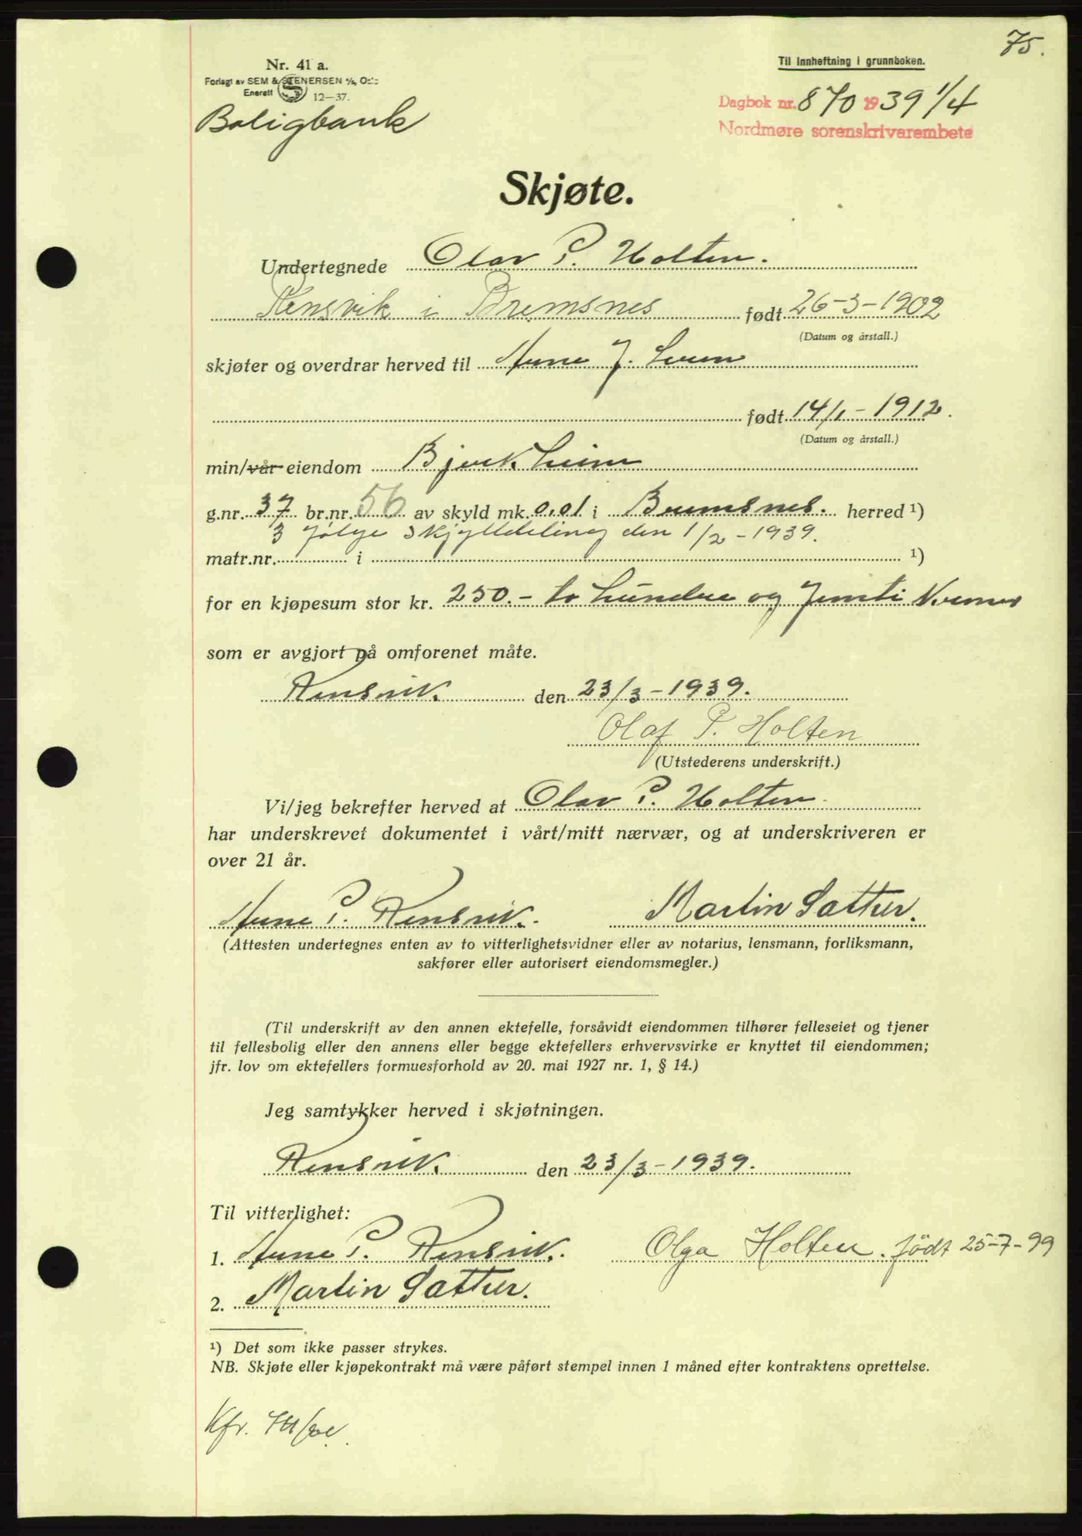 75.
Nr. 41 a.
Forlagt av SEM & STENERSEN A/S, Oslo
Enerett 12—37.
Til innheftning i grunnboken.
Boligbank
Dagbok nr. 870 1939 1/4
Nordmøre sorenskrivarembete
Skjøte.
Undertegnede Olav P. Holten.
Rensvik i Bremsnes født 26-3-1902
(Datum og årstall.)
skjøter og overdrar herved til Arne J.
født 14/1-1912.
(Datum og årstall.)
min/vår eiendom Bjerkheim
g.nr. 37 br.nr. 56 av skyld mk. 0,01 i Bremsnes. herred ¹)
3 følge skylddeling den 1/2-1939.
matr.nr. i ¹)
for en kjøpesum stor kr. 250.- to hundre og femti kroner
som er avgjort på omforenet måte.
Rensvik. den 23/3-1939.
Olaf P. Holten
(Utstederens underskrift.)
Vi/jeg bekrefter herved at Olav P. Holten
har underskrevet dokumentet i vårt/mitt nærvær, og at underskriveren er
over 21 år.
Arne P. Rensvik. Martin Sæther.
(Attesten undertegnes enten av to vitterlighetsvidner eller av notarius, lensmann, forliksmann,
sakfører eller autorisert eiendomsmegler.)
(Til underskrift av den annen ektefelle, forsåvidt eiendommen tilhører felleseiet og tjener
til fellesbolig eller den annens eller begge ektefellers erhvervsvirke er knyttet til eiendommen;
jfr. lov om ektefellers formuesforhold av 20. mai 1927 nr. 1, § 14.)
Jeg samtykker herved i skjøtningen.
Rensvik. den 23/3-1939.
Til vitterlighet:
1. Arne P. Rensvik. Olga Holten. født 25-7-99
2. Martin Sæther.
¹) Det som ikke passer strykes.
NB. Skjøte eller kjøpekontrakt må være påført stempel innen 1 måned efter kontraktens oprettelse.
Kfr.